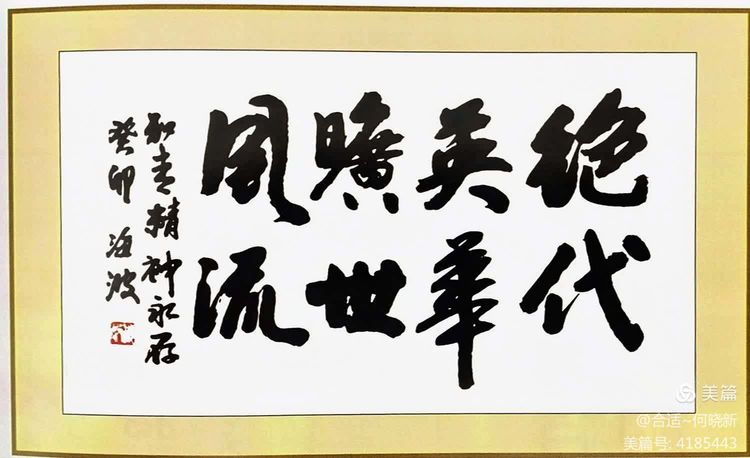 絶代
英華
曠世
風流
知青精神永存
癸卯 海波
美篇
@合适~何晓新
美篇号: 4185443